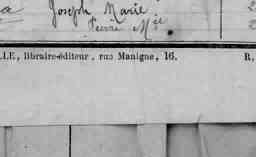 Joseph Marie
Pierre Mie
LLE, libraire-éditeur, rue Manigne, 16. R,